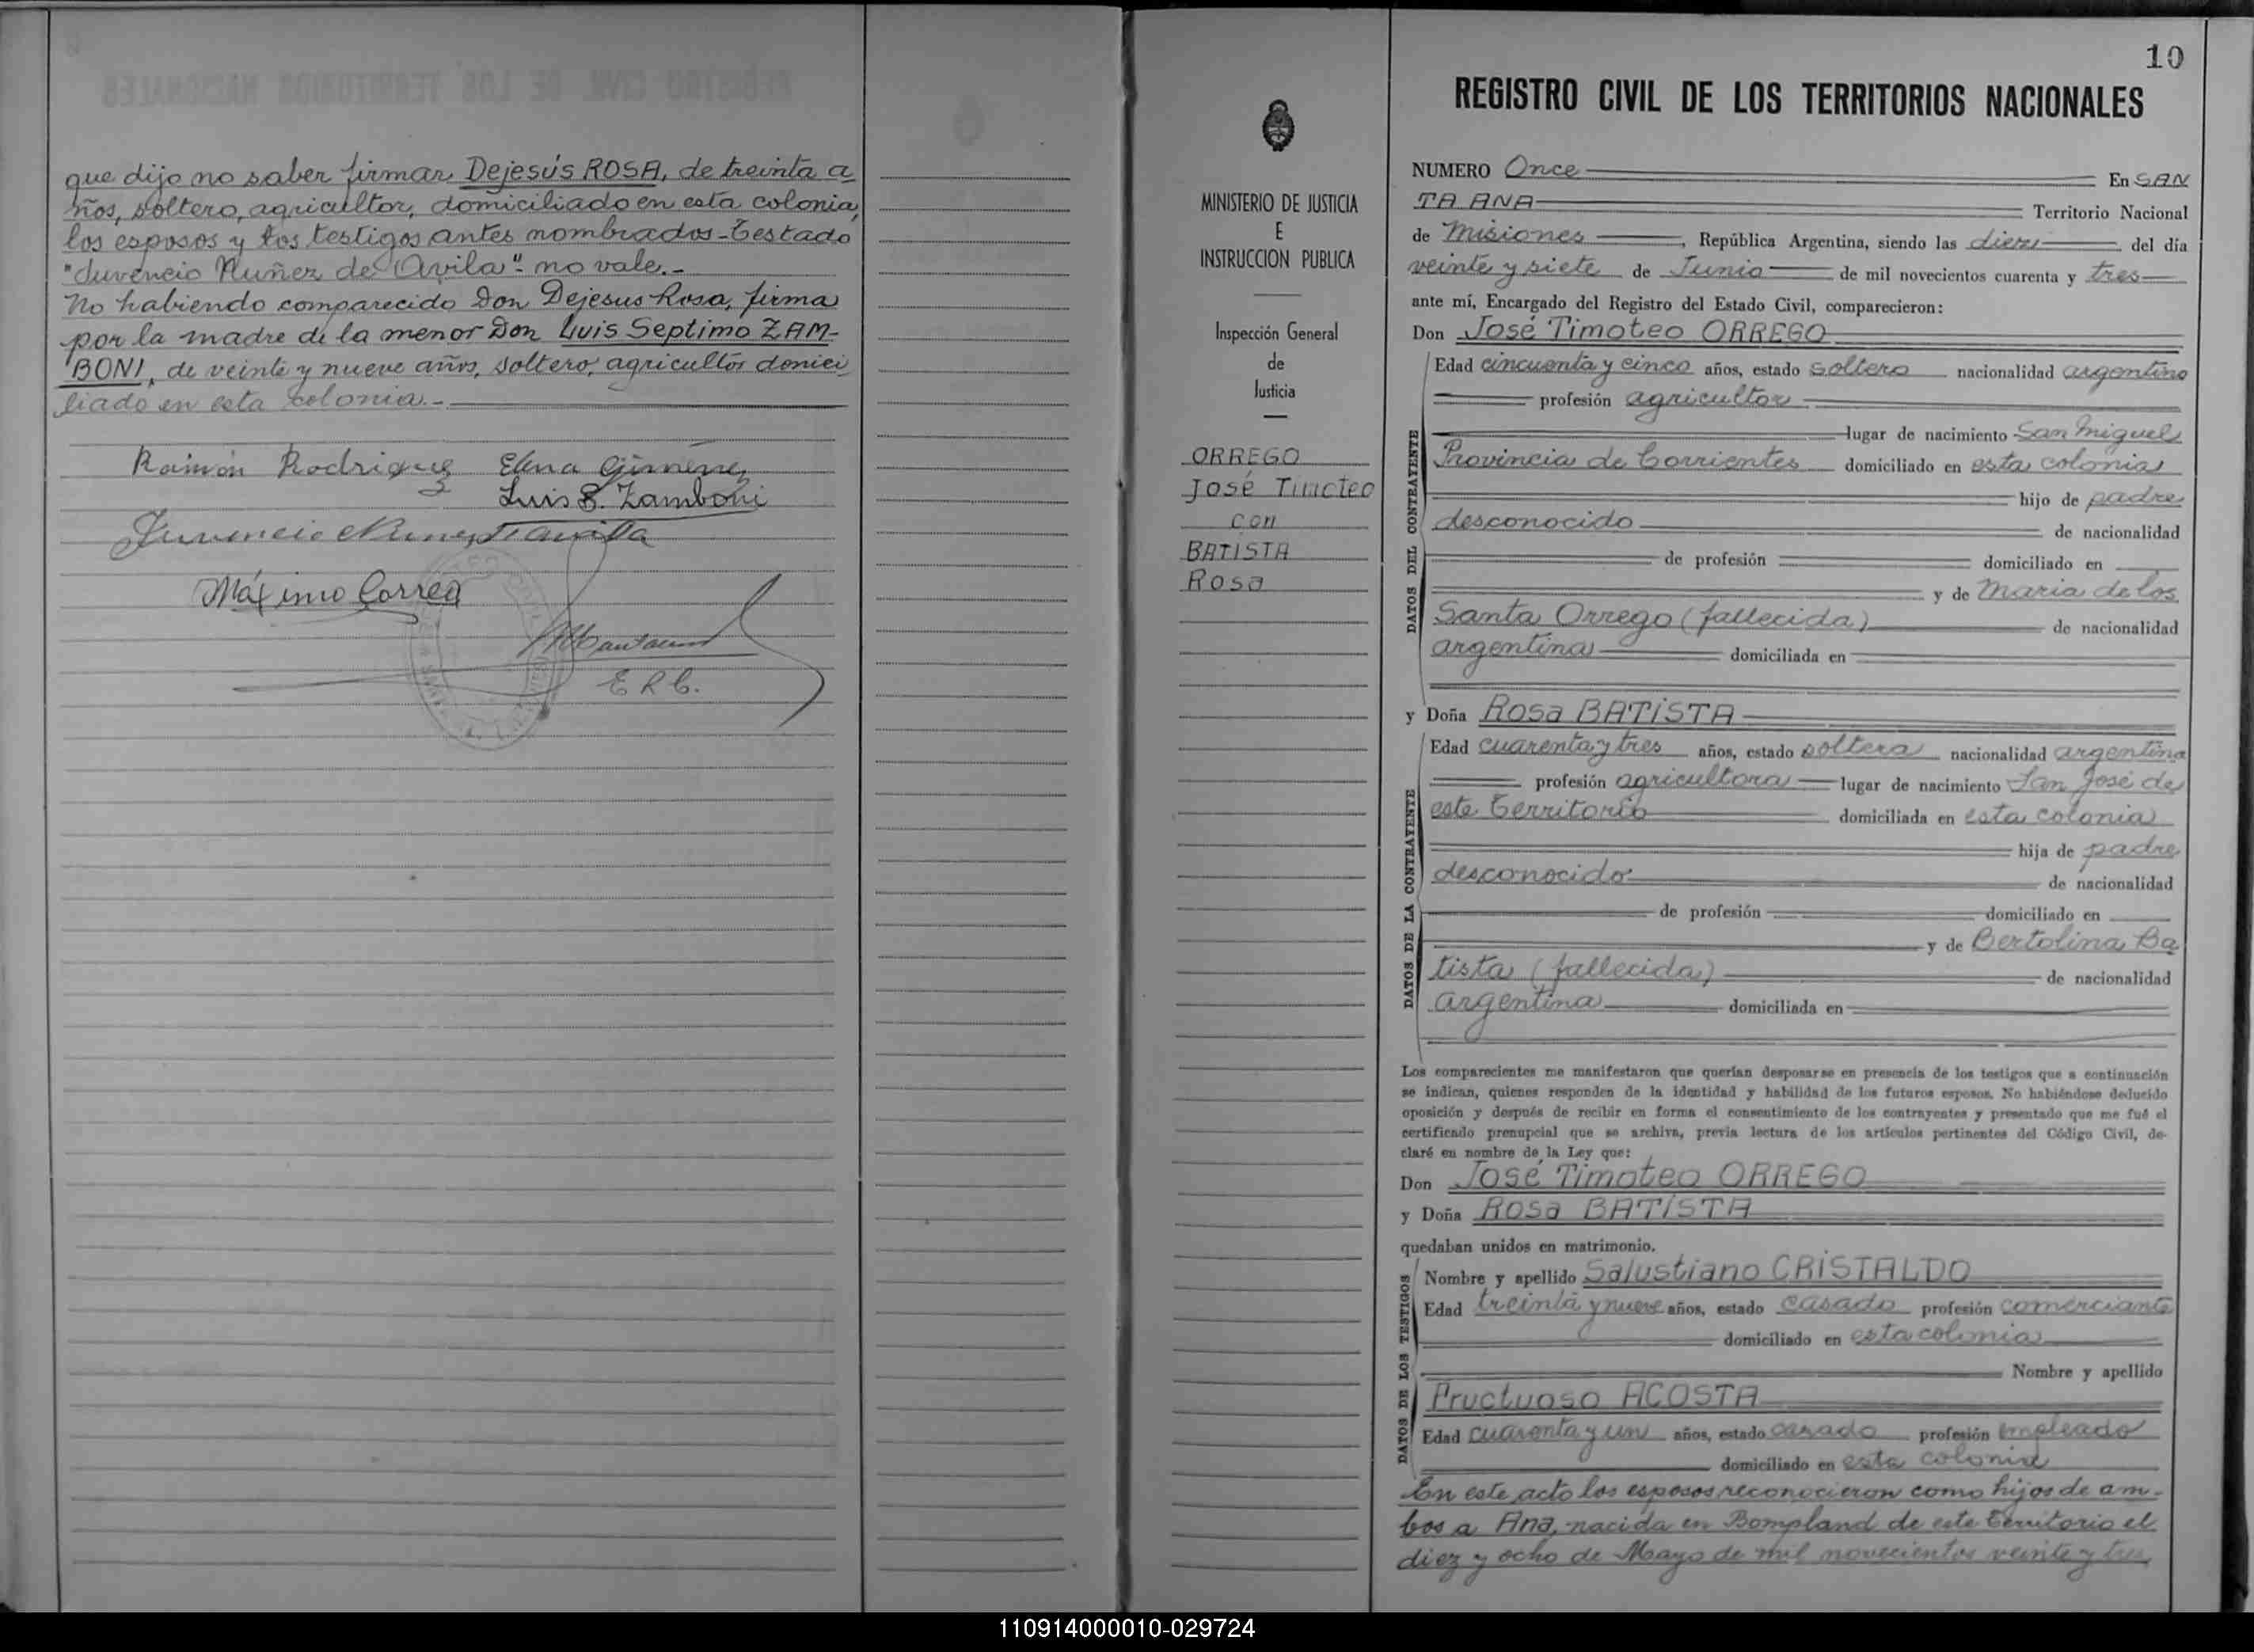 que dijo no saber firmar, Dejesús ROSA, de treinta a
ños, soltero, agricultor, domiciliado en esta colonia,
los esposos y los testigos antes nombrados-Testado
"Juvencio Nuñez de Avila"- no vale.-
No habiendo comparecido Don Dejesus Rosa, firma
por la madre de la menor Don Luis Septimo ZAM-
BONI, de veinte y nueve años, soltero, agricultor domici
liado en esta colonia.-
Ramón Rodriguez Elena Gimenez
Luis S. Zamboni
Juvencio
Máximo Correa
E R C.
MINISTERIO DE JUSTICIA
E
INSTRUCCION PUBLICA
Inspección General
de
Justicia
ORREGO
José Timoteo
con
BATISTA
Rosa
10
REGISTRO CIVIL DE LOS TERRITORIOS NACIONALES
NUMERO Once En SAN
TA ANA Territorio Nacional
de Misiones, República Argentina, siendo las diez del día
veinte y siete de Junio de mil novecientos cuarenta y tres
ante mí, Encargado del Registro del Estado Civil, comparecieron:
Don José Timoteo ORREGO
DATOS DEL CONTRAYENTE
Edad cincuenta y cinco años, estado soltero nacionalidad argentino
profesión agricultor
lugar de nacimiento San Miguel
Provincia de Corrientes domiciliado en esta colonia
hijo de padre
desconocido de nacionalidad
de profesión domiciliado en
y de Maria de los
Santa Orrego (fallecida) de nacionalidad
argentina domiciliada en
y Doña Rosa BATISTA
DATOS DE LA CONTRAYENTE
Edad cuarenta y tres años, estado soltera nacionalidad argentina
profesión agricultora lugar de nacimiento San José de
este territorio domiciliada en esta colonia
hija de padre
desconocido de nacionalidad
de profesión domiciliado en
y de Bertolina Ba
tista (fallecida) de nacionalidad
argentina domiciliada en
Los comparecientes me manifestaron que querían desposarse en presencia de los testigos que a continuación
se indican, quienes responden de la identidad y habilidad de los futuros esposos. No habiéndose deducido
oposición y después de recibir en forma el consentimiento de los contrayentes y presentado que me fué el
certificado prenupcial que se archiva, previa lectura de los artículos pertinentes del Código Civil, de-
claré en nombre de la Ley que:
Don José Timoteo ORREGO
y Doña Rosa BATISTA
quedaban unidos en matrimonio.
DATOS DE LOS TESTIGOS
Nombre y apellido Salustiano CRISTALDO
Edad treinta y nueve años, estado casado profesión comerciante
domiciliado en esta colonia
Nombre y apellido
Fructuoso ACOSTA
Edad cuarenta y un años, estado casado profesión empleado
domiciliado en esta colonia
En este acto los esposos reconocieron como hijos de am-
bos a Ana, nacida en Bompland de este territorio el
diez y ocho de Mayo de mil novecientos veinte y tres
110914000010-029724